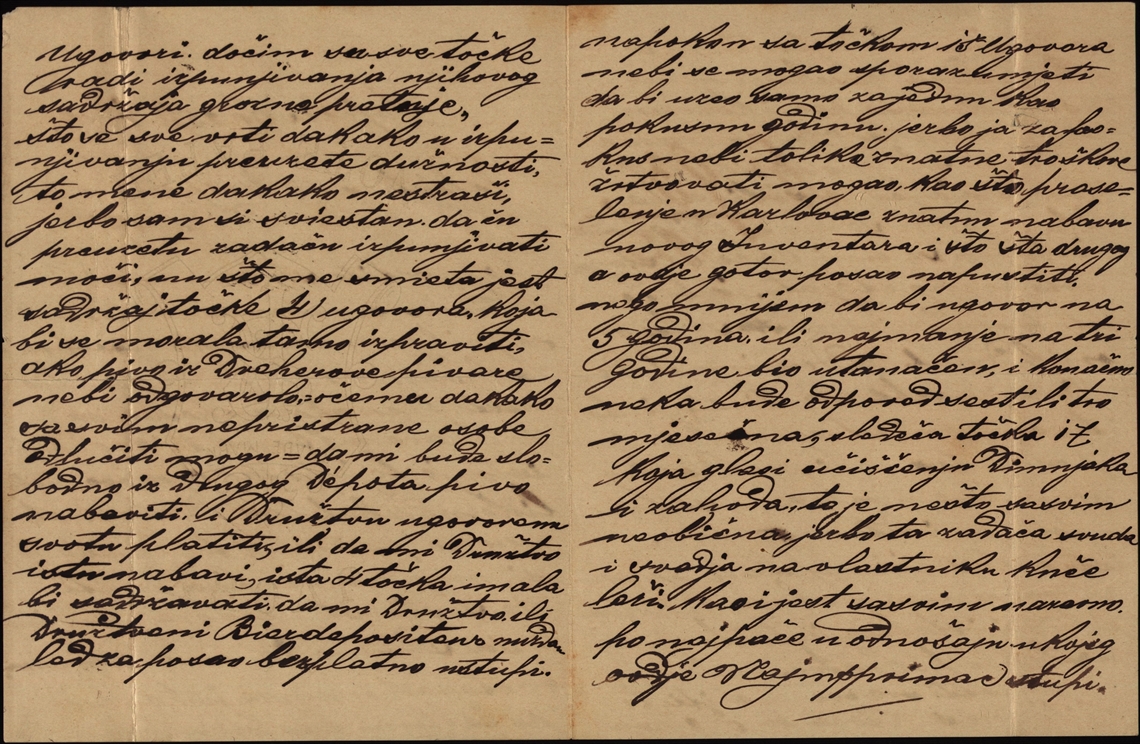 Ugovori dočim su sve točke
radi izpunjivanja njihovog
sadržaja grozne pretnje,
što se sve vrti dakako u izpu=
njivanju preuzete dužnosti,
to mene dakako nestraši,
jerbo sam si sviestan da ću
preuzetu zadaću izpunjivati
moći, nu što me smieta jest
sadržaj točke 4) ugovora, koja
bi se morala tamo izpraviti,
ako pivo iz Dreherove pivare
nebi odgovaralo,=očemu dakako
sasvim nepristrane osobe
odlučiti mogu=da mi bude slo=
bodno iz drugog Dépota pivo
nabaviti i Družtvu ugovorenu
svotu platiti, ili da mi Družtvo
istu nabavi, ista 4 točka imala
bi sadržavati da mi Družtvo ili
Družtveni Bierdepositeur nuždan
led za posao bezplatno ustupi.
napokon sa točkom 15 Ugovora
nebi se mogao sporazumjeti
da bi uzeo samo za jednu kao
pokusnu godinu jerbo ja za po=
kus nebi tolike znatne troškove
žrtvovati mogao, kao što prese=
lenje u Karlovac znatnu nabavu
novog Inventara i što šta drugog
a ovdje gotov posao napustiti,
nego mnijem da bi ugovor na
5 godina, ili najmanje na tri
godine bio utanačen, i konačno
neka bude odpoved sest ili tro
mjesečna, sledeća točka 17
koja glasi učišćenju Dimnjaka
i zahoda, to je nešto sasvim
neobična, jerbo ta zadaća svuda
i svedja na vlastniku kuće
leži
po najpače u odnošaju u kojeg
ovdje Najmoprimac stupi.